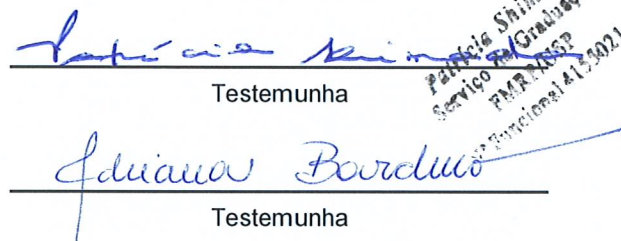 Patrícia
Patrícia Shim
Serviço de Graduação
FMRP/USP
Funcional 4153021
Testemunha
Adriana
Testemunha